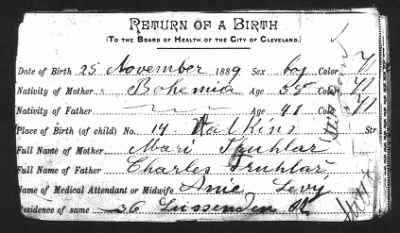 RETURN OF A BIRTH
(TO THE BOARD OF HEALTH OF THE CITY OF CLEVELAND.)
Date of Birth 25 November 1889 Sex boy Color
Nativity of Mother " Bohemia Age 38 Color
Nativity of Father " Age 41 Color
Place of Birth (of child) No. 19 Watkins Str
Full Name of Mother Mari Truhlar
Full Name of Father Charles Truhlar
Name of Medical Attendant or Midwife Anie Levy
Residence of same 36